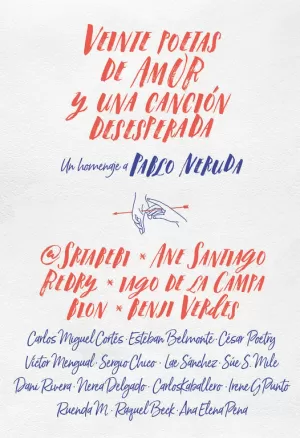 VEINTE POETAS
DE AMOR
Y UNA CANCIÓN
DESESPERADA
Un homenaje a PABLO NERUDA
@SRTABEBI × ANE SANTIAGO
REDRY × IAGO DE LA CAMPA
BLON × BENJI VERDES
Carlos Miguel Cortés · Esteban Belmonte · César Poetry
Víctor Mengual · Sergio Chico · Lae Sánchez · Sue S. Mile
Dani Rivera · Nerea Delgado · CarlosKaballero · Irene G Punto
Ruenda M. · Raquel Beck · Ana Elena Pena